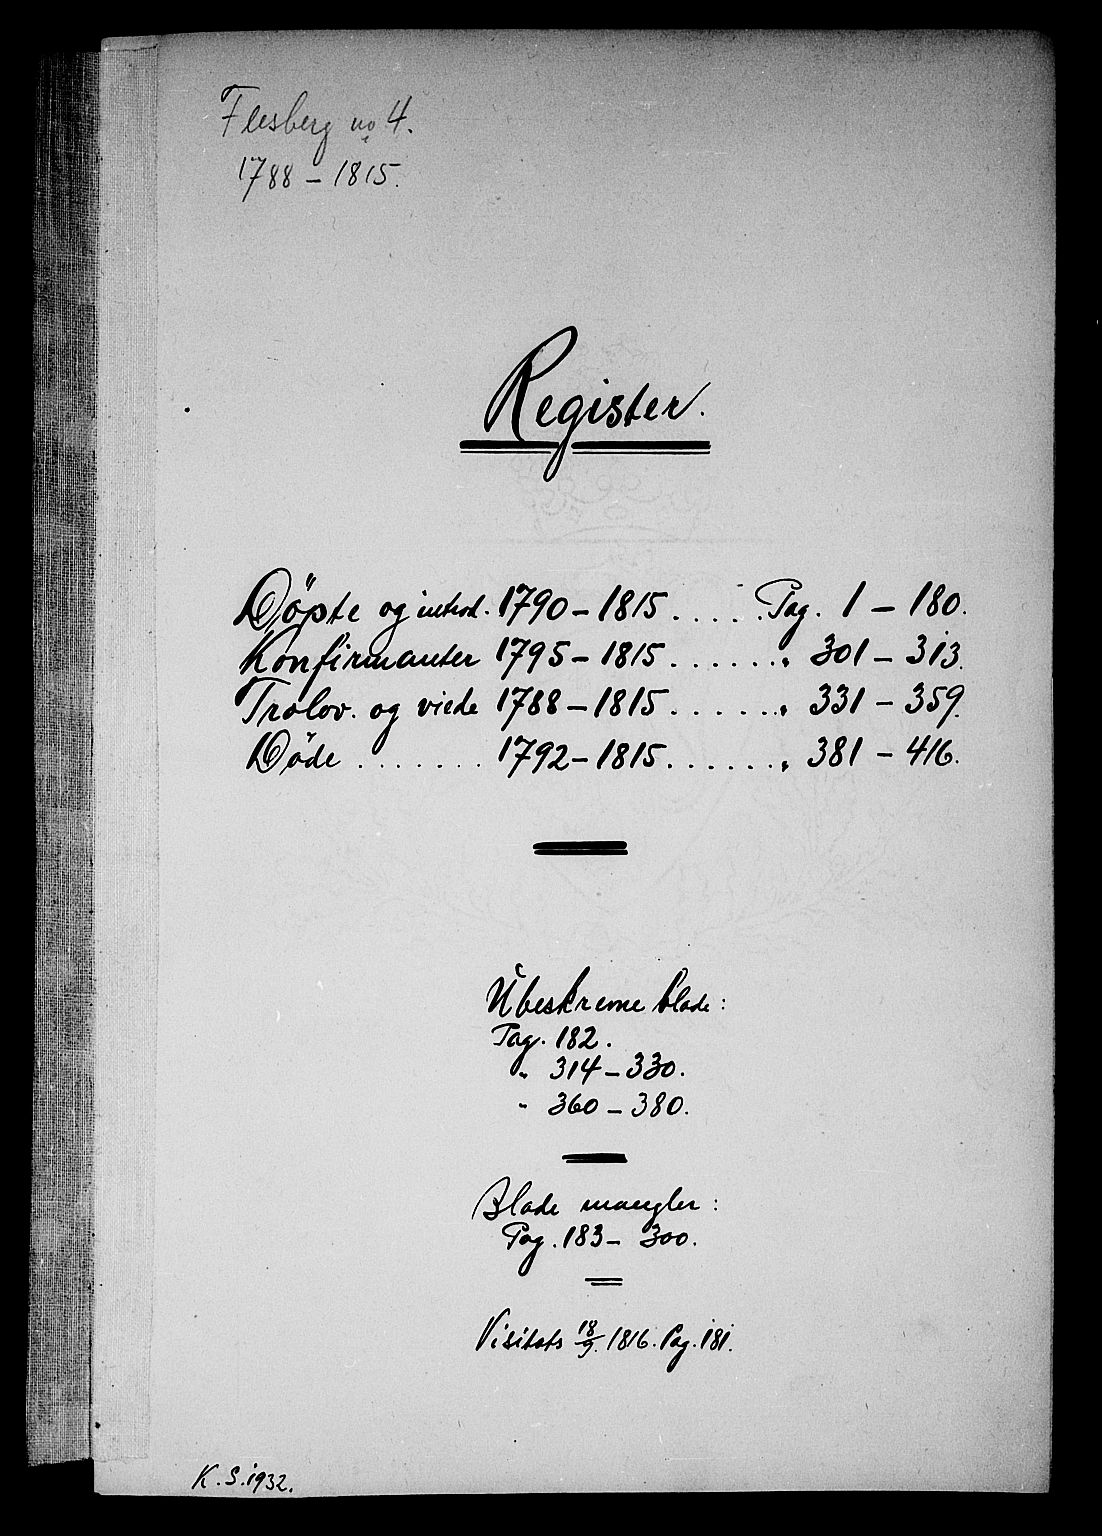 Flesberg no 4.
1788 – 1815.
Register.
Döpte og introd. 1790 – 1815 . . . . . Pag. 1 – 180.
Konfirmanter 1795 – 1815 . . . . . . " 301 – 313.
Trolov. og viede 1788 – 1815 . . . . . . " 331 – 359.
Döde . . . . . . . 1792 – 1815 . . . . . . " 381 – 416.
Ubeskrevne blade:
Pag. 182.
" 314 – 330.
" 360 – 380.
Blade mangler:
Pag. 183 – 300.
Visitats 18/9. 1816. Pag. 181.
K. S. 1932.